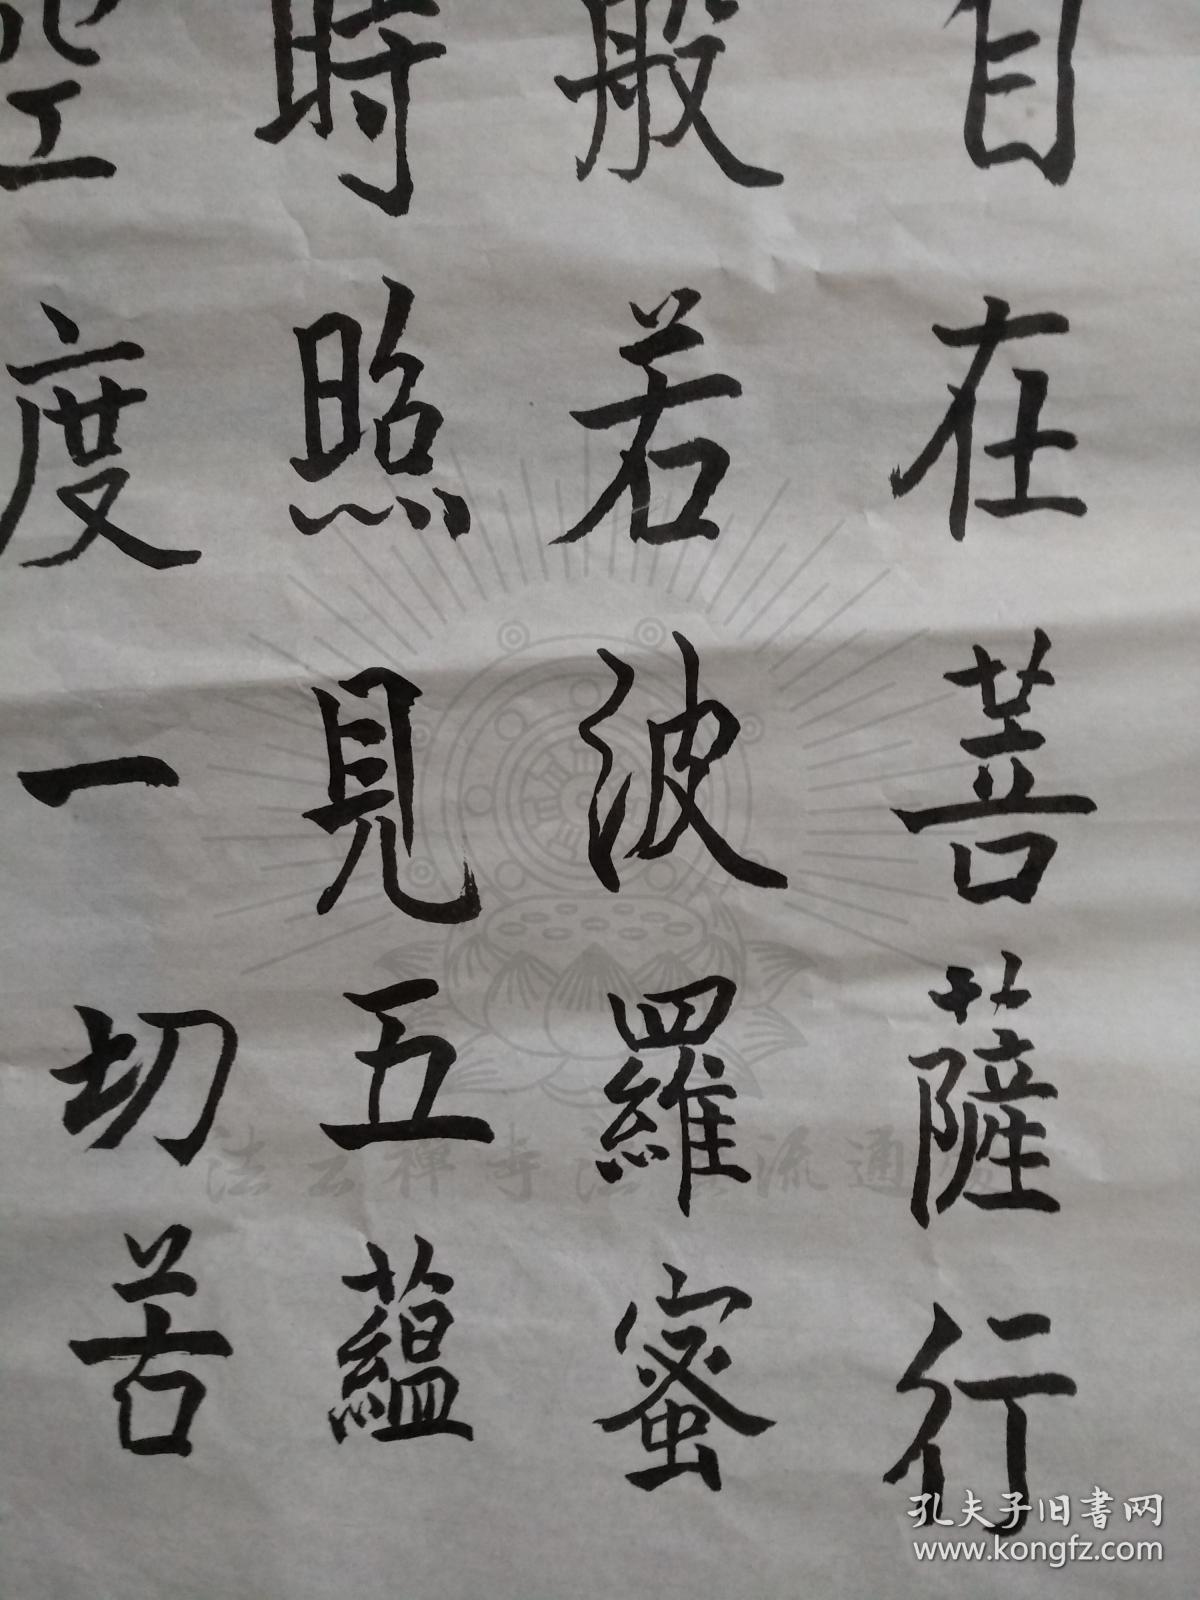 自在菩薩行
般若波羅蜜
時照見五蘊
空度一切苦
法云禅寺法
流通
孔夫子旧書网
www.kongfz.com